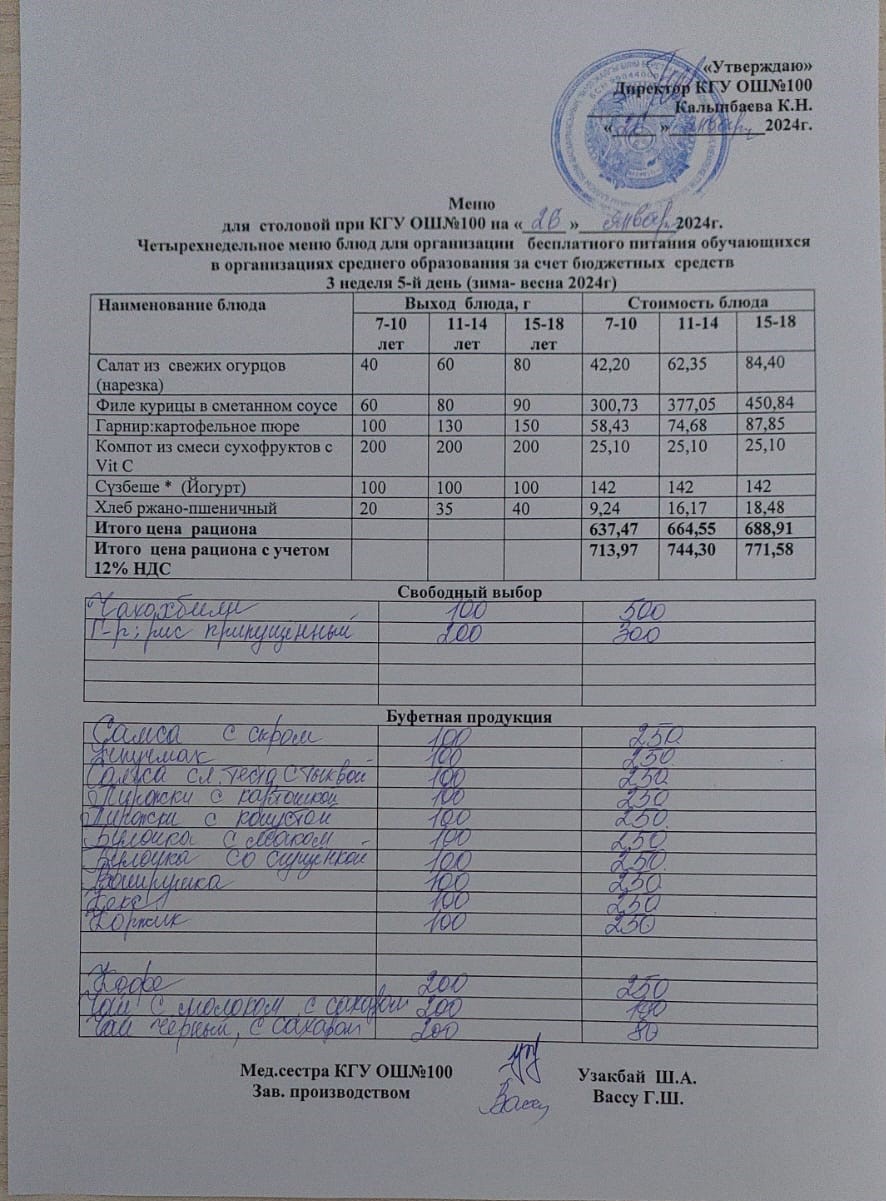 «Утверждаю»
Директор КГУ ОШ№100
Калынбаева К.Н.
« » январ 2024г.
Меню
для столовой при КГУ ОШ№100 на «26» январ 2024г.
Четырехнедельное меню блюд для организации бесплатного питания обучающихся
в организациях среднего образования за счет бюджетных средств
3 неделя 5-й день (зима- весна 2024г)
Наименование блюда Выход блюда, г Стоимость блюда
7-10 лет 11-14 лет 15-18 лет 7-10 11-14 15-18
Салат из свежих огурцов (нарезка) 40 60 80 42,20 62,35 84,40
Филе курицы в сметанном соусе 60 80 90 300,73 377,05 450,84
Гарнир:картофельное пюре 100 130 150 58,43 74,68 87,85
Компот из смеси сухофруктов с Vit C 200 200 200 25,10 25,10 25,10
Сүзбеше * (Йогурт) 100 100 100 142 142 142
Хлеб ржано-пшеничный 20 35 40 9,24 16,17 18,48
Итого цена рациона 637,47 664,55 688,91
Итого цена рациона с учетом 12% НДС 713,97 744,30 771,58
Свободный выбор
Чахохбили 100 500
Г-р: рис припущенный 200 300
Буфетная продукция
Самса с сыром 100 250
100 250
Самса сл. теста с тыквой 100 250
Пирожки с картошкой 100 250
Пирожки с капустой 100 250
Булочка с маком 100 250
Булочка со сгущенкой 100 250
Ватрушка 100 250
Кекс 100 250
Коржик 100 250
Кофе 200 250
Чай с молоком, с сахаром 200
Чай черный, с сахаром 200 80
Мед.сестра КГУ ОШ№100 Узакбай Ш.А.
Зав. производством Вассу Г.Ш.